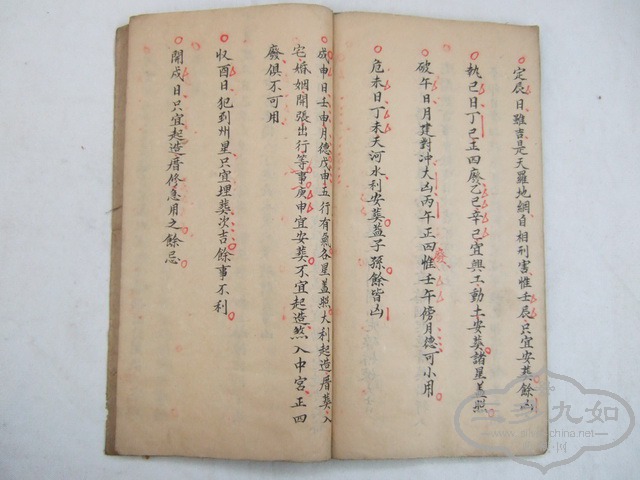 定辰日雖吉是天羅地網自相刑害惟壬辰只宜安葬餘凶
執巳日丁巳正四廢乙巳辛巳宜興工動土安葬諸星盖照
破午日月建對冲大凶丙午正四廢惟壬午傍月德可小用
危未日丁未天河水利安葬益子孫餘皆凶
成申日壬申月德戊申五行有氣各星盖照大利起造厝葬入
宅婚姻開張出行等事庚申宜安葬不宜起造煞入中宮正四
廢俱不可用
收酉日犯到州星只宜埋葬次吉餘事不利
開戌日只宜起造厝修急用之餘忌
三多九如
china.net